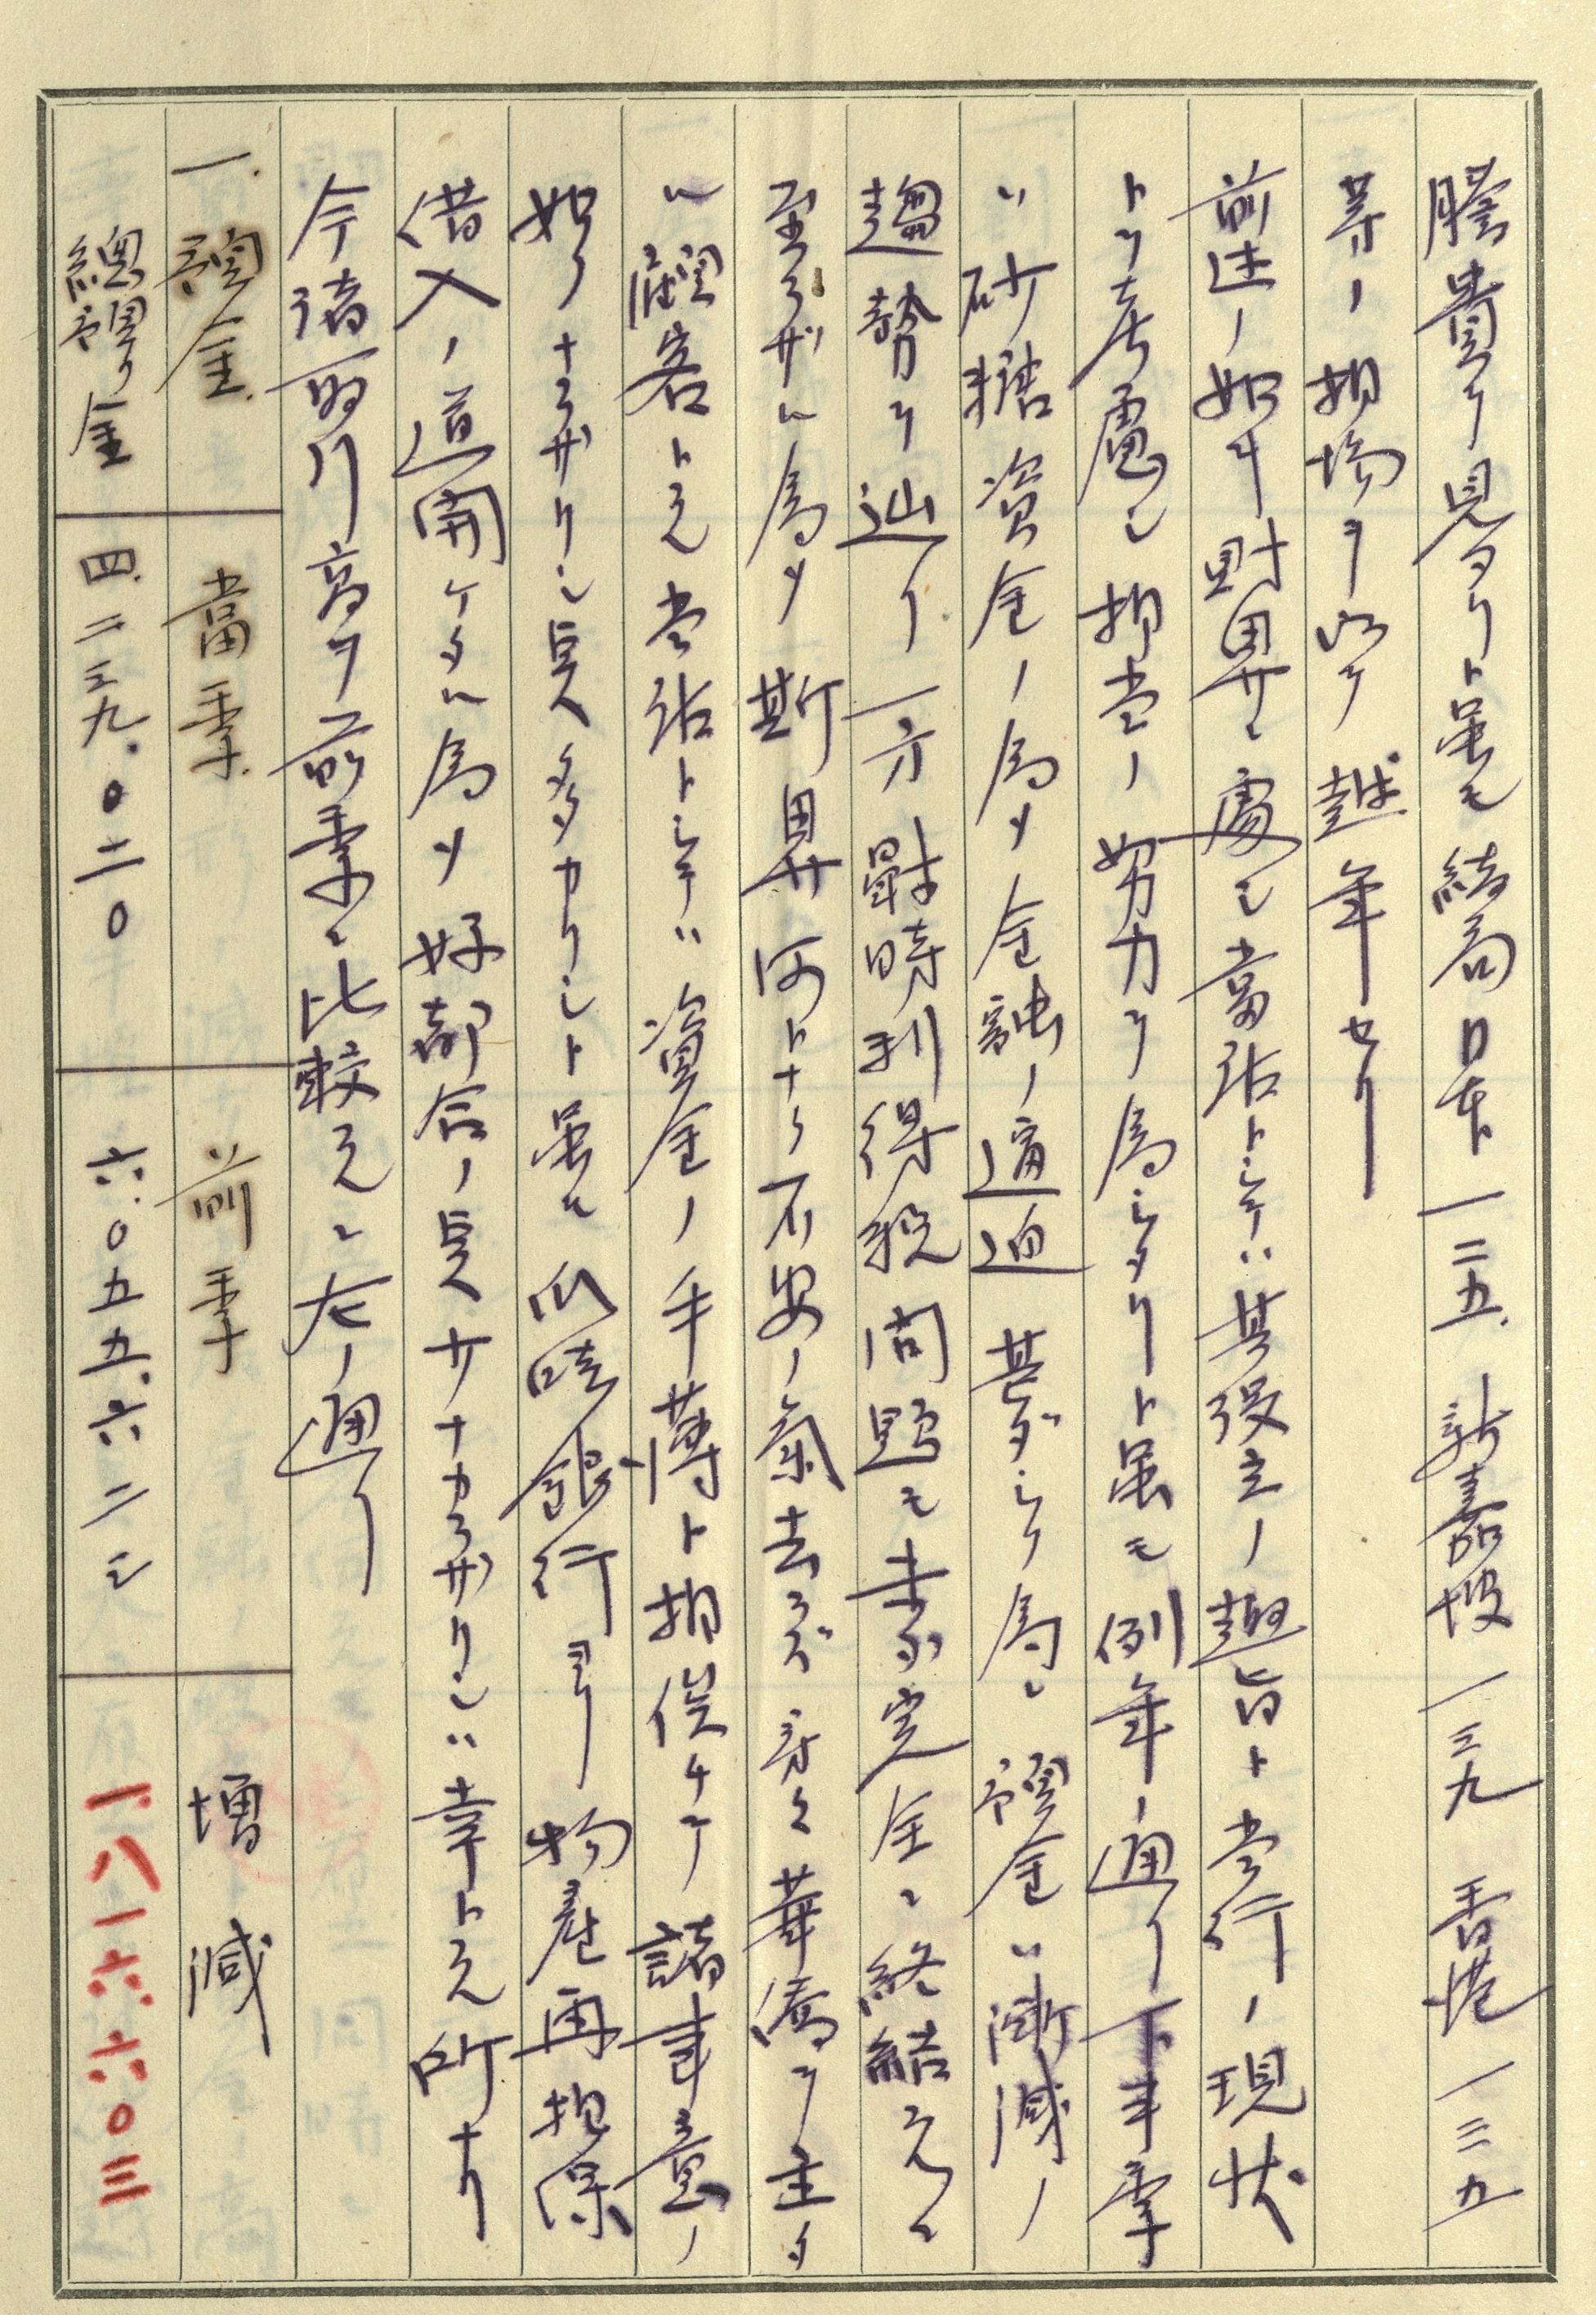 騰貴ヲ見タリト虽モ結局日本一二五.新嘉坡一三九香港一三五
等ノ相場ヲ以テ越年セリ
前述ノ如キ財界ニ處シ當店トシテハ其設立ノ趣旨ト当行ノ現状
トヲ考慮シ相当ノ努力ヲ為シタリト虽モ例年ノ通リ下半季
ハ砂糖資金ノ為メ金融ノ逼迫甚ダシク為ニ預金ハ漸減ノ
趨勢ヲ辿リ一方戰時利得税問題モ未ダ完全ニ終結スルニ
至ラザル為メ斯界何トナク不安ノ氣去ラズ旁々華僑ヲ主タ
ル顧客トスル当店トシテハ資金ノ手薄ト相俟チテ諸事意ノ
如クナラザリシ点多カリシト虽モ爪哇銀行ヨリ物産再担保
借入ノ道開ケタル為メ好都合ノ点少ナカラザリシハ幸トスル所ナリ
今諸取引高ヲ前季ニ比較スルニ左ノ通リ
一.預金. 當季. 前季 増減
総預リ金 四.二三九.〇二〇 六.〇五五.六二三 一.八一六.六〇三